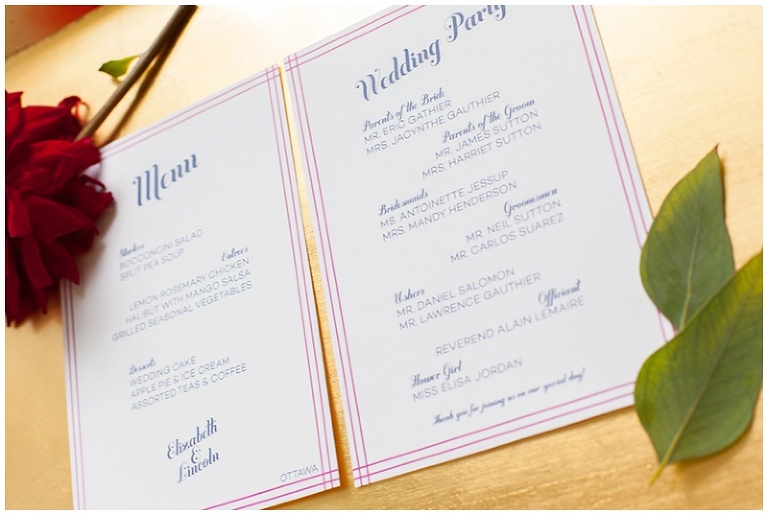 Menu
Starters
BOCCONCINI SALAD
SPLIT PEA SOUP
Entrees
LEMON ROSEMARY CHICKEN
HALIBUT WITH MANGO SALSA
GRILLED SEASONAL VEGETABLES
Desserts
WEDDING CAKE
APPLE PIE & ICE CREAM
ASSORTED TEAS & COFFEE
Elizabeth
&
Lincoln
OTTAWA
Wedding Party
Parents of the Bride
MR. ERIC GATHIER
MRS. JACYNTHE GAUTHIER
Parents of the Groom
MR. JAMES SUTTON
MRS. HARRIET SUTTON
Bridesmaids
MS. ANTOINETTE JESSUP
MRS. MANDY HENDERSON
Groomsmen
MR. NEIL SUTTON
MR. CARLOS SUAREZ
Ushers
MR. DANIEL SALOMON
MR. LAWRENCE GAUTHIER
Officiant
REVEREND ALAIN LEMAIRE
Flower Girl
MISS ELISA JORDAN
Thank you for joining us on our special day!